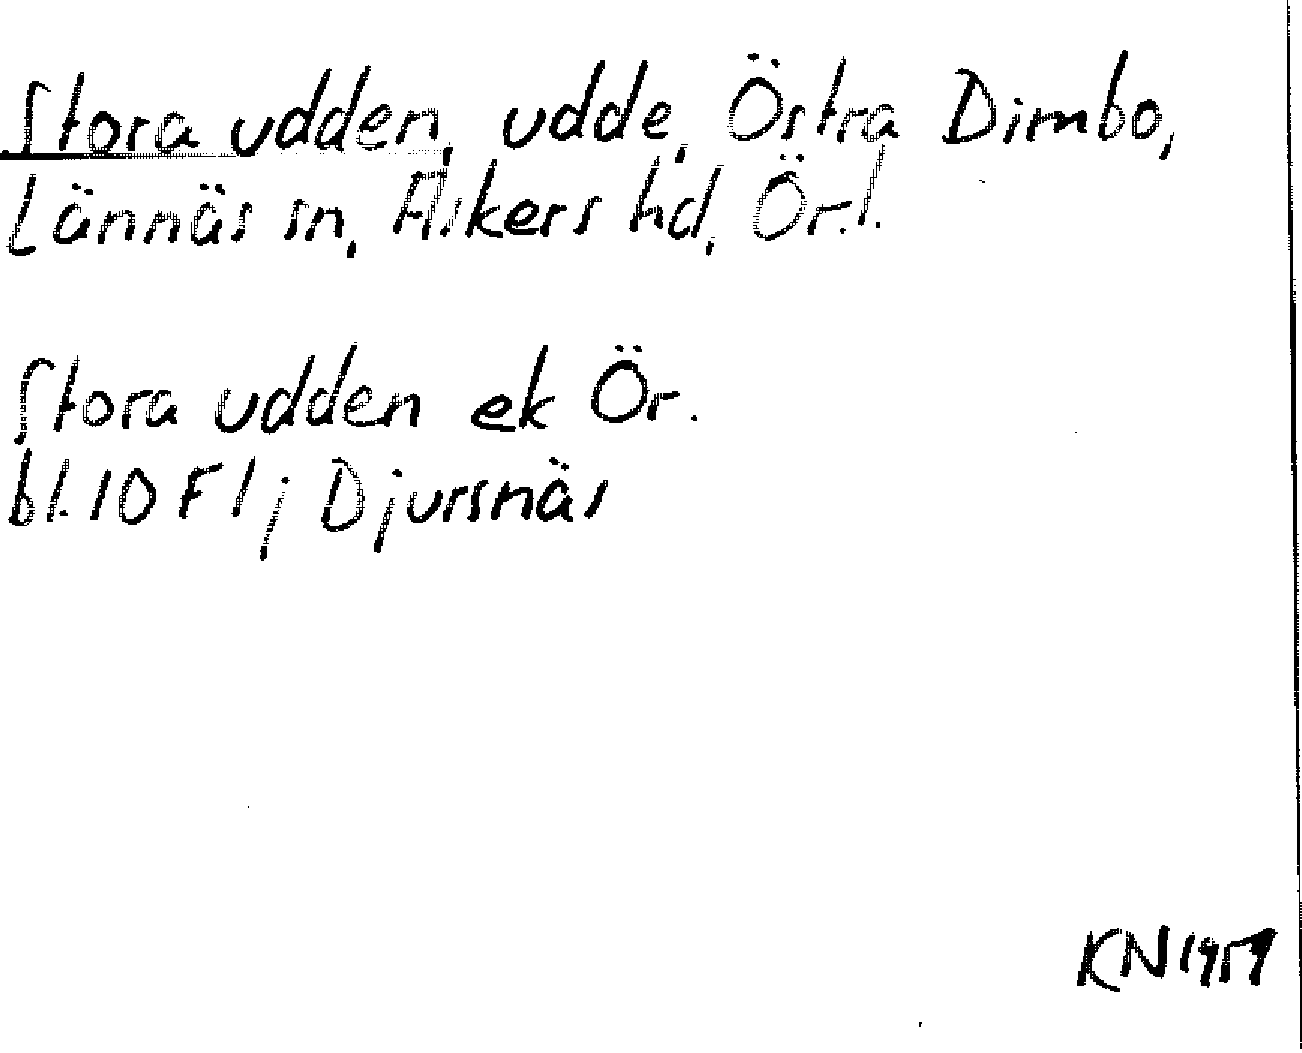 Stora udden, udde, Östra Dimbo,
Lännäs sn, Askers hd, Ör.l.
Stora udden ek Ör.
bl. 10 F 1 j Djursnäs
KN 1959